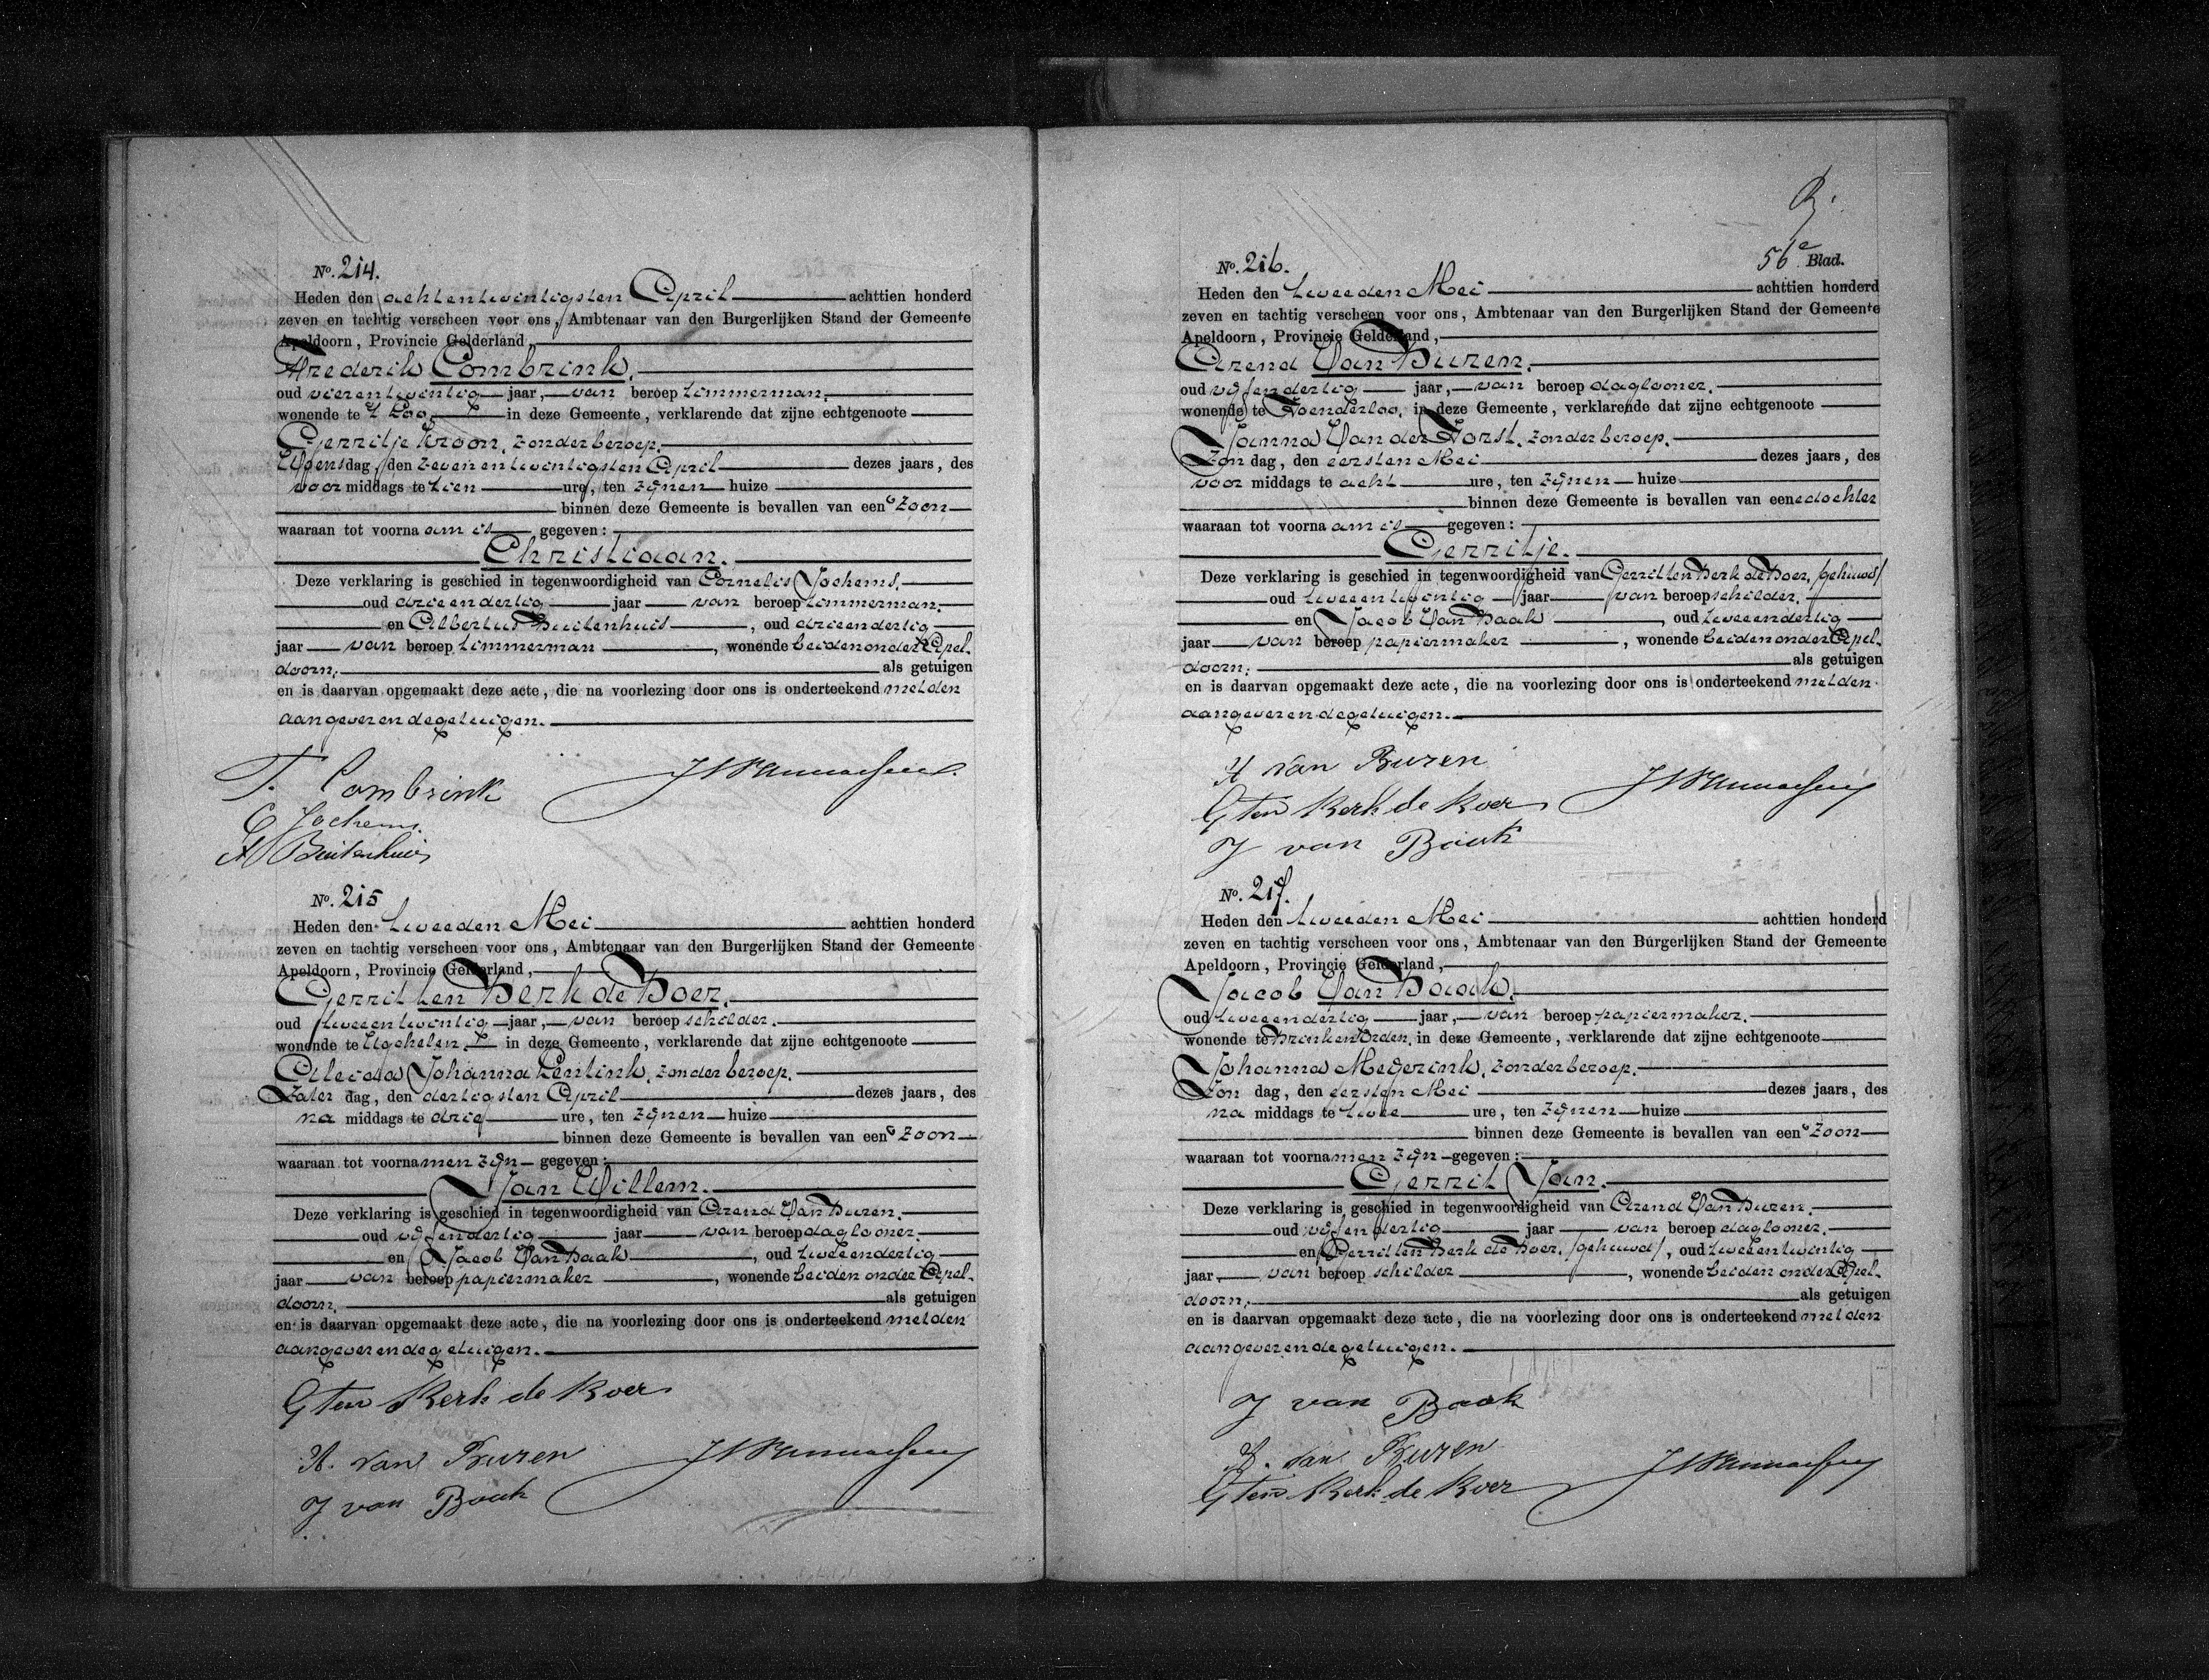 No. 214.
Heden den achtentwintigsten April achttien honderd
zeven en tachtig verscheen voor ons, Ambtenaar van den Burgerlijken Stand der Gemeente
Apeldoorn, Provincie Gelderland,
Frederik Combrink.
oud vierentwintig jaar, van beroep timmerman.
wonende te 't Loo in deze Gemeente, verklarende dat zijne echtgenoote
Gerritje Kroon, zonder beroep.
Woensdag, den zevenentwintigsten April dezes jaars, des
voormiddags te tien ure, ten zijnen huize
binnen deze Gemeente is bevallen van een zoon
waaraan tot voornaam is gegeven:
Christiaan.
Deze verklaring is geschied in tegenwoordigheid van Cornelis Jochems.
oud drieendertig jaar van beroep timmerman.
en Albertus Buitenhuis, oud drieendertig
jaar van beroep timmerman, wonende beiden onder Apel-
doorn. als getuigen
en is daarvan opgemaakt deze acte, die na voorlezing door ons is onderteekend met den
aangever en de getuigen.
F. Combrink
C Jochems.
A Buitenhuis
No. 215
Heden den tweeden Mei achttien honderd
zeven en tachtig verscheen voor ons, Ambtenaar van den Burgerlijken Stand der Gemeente
Apeldoorn, Provincie Gelderland,
Gerrit ten Berk de Boer.
oud tweeentwintig jaar, van beroep schilder.
wonende te Ugchelen. in deze Gemeente, verklarende dat zijne echtgenoote
Aleida Johanna Lentink, zonder beroep.
Zaterdag, den dertigsten April dezes jaars, des
namiddags te drie ure, ten zijnen huize
binnen deze Gemeente is bevallen van een zoon
waaraan tot voornamen zijn gegeven:
Jan Willem.
Deze verklaring is geschied in tegenwoordigheid van Arend Van Buren.
oud vijfendertig jaar van beroep daglooner.
en Jacob Van Baak, oud tweeendertig
jaar van beroep papiermaker, wonende beiden onder Apel-
doorn. als getuigen
en is daarvan opgemaakt deze acte, die na voorlezing door ons is onderteekend met den
aangever en de getuigen.
G ten Berk de Boer
A. van Buren
J van Baak
56e Blad.
No. 216.
Heden den tweeden Mei achttien honderd
zeven en tachtig verscheen voor ons, Ambtenaar van den Burgerlijken Stand der Gemeente
Apeldoorn, Provincie Gelderland,
Arend Van Buren.
oud vijfendertig jaar, van beroep daglooner.
wonende te Hoenderloo, in deze Gemeente, verklarende dat zijne echtgenoote
Janna Van der Horst, zonder beroep.
Zondag, den eersten Mei dezes jaars, des
voormiddags te acht ure, ten zijnen huize
binnen deze Gemeente is bevallen van eene dochter
waaraan tot voornaam is gegeven:
Gerritje.
Deze verklaring is geschied in tegenwoordigheid van Gerrit ten Berk de Boer, /gehuwd/
oud tweeentwintig jaar van beroep schilder.
en Jacob Van Baak, oud tweeendertig
jaar van beroep papiermaker, wonende beiden onder Apel-
doorn. als getuigen
en is daarvan opgemaakt deze acte, die na voorlezing door ons is onderteekend met den
aangever en de getuigen.
A van Buren
G ten Berk de Boer
J van Baak
No. 217.
Heden den tweeden Mei achttien honderd
zeven en tachtig verscheen voor ons, Ambtenaar van den Burgerlijken Stand der Gemeente
Apeldoorn, Provincie Gelderland,
Jacob Van Baak.
oud tweeendertig jaar, van beroep papiermaker.
wonende te Brink en Orden, in deze Gemeente, verklarende dat zijne echtgenoote
Johanna Megerink, zonder beroep.
Zondag, den eersten Mei dezes jaars, des
namiddags te twee ure, ten zijnen huize
binnen deze Gemeente is bevallen van een zoon
waaraan tot voornamen zijn gegeven:
Gerrit Jan.
Deze verklaring is geschied in tegenwoordigheid van Arend Van Buren.
oud vijfendertig jaar van beroep daglooner.
en Gerrit ten Berk de Boer, /gehuwd/, oud tweeentwintig
jaar, van beroep schilder, wonende beiden onder Apel-
doorn. als getuigen
en is daarvan opgemaakt deze acte, die na voorlezing door ons is onderteekend met den
aangever en de getuigen.
J van Baak
A. van Buren
G ten Berk de Boer